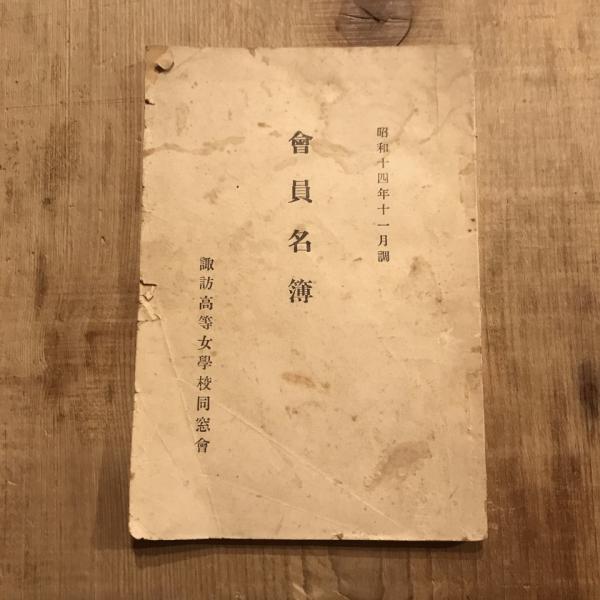 昭和十四年十一月調
會員名簿
諏訪高等女學校同窓會